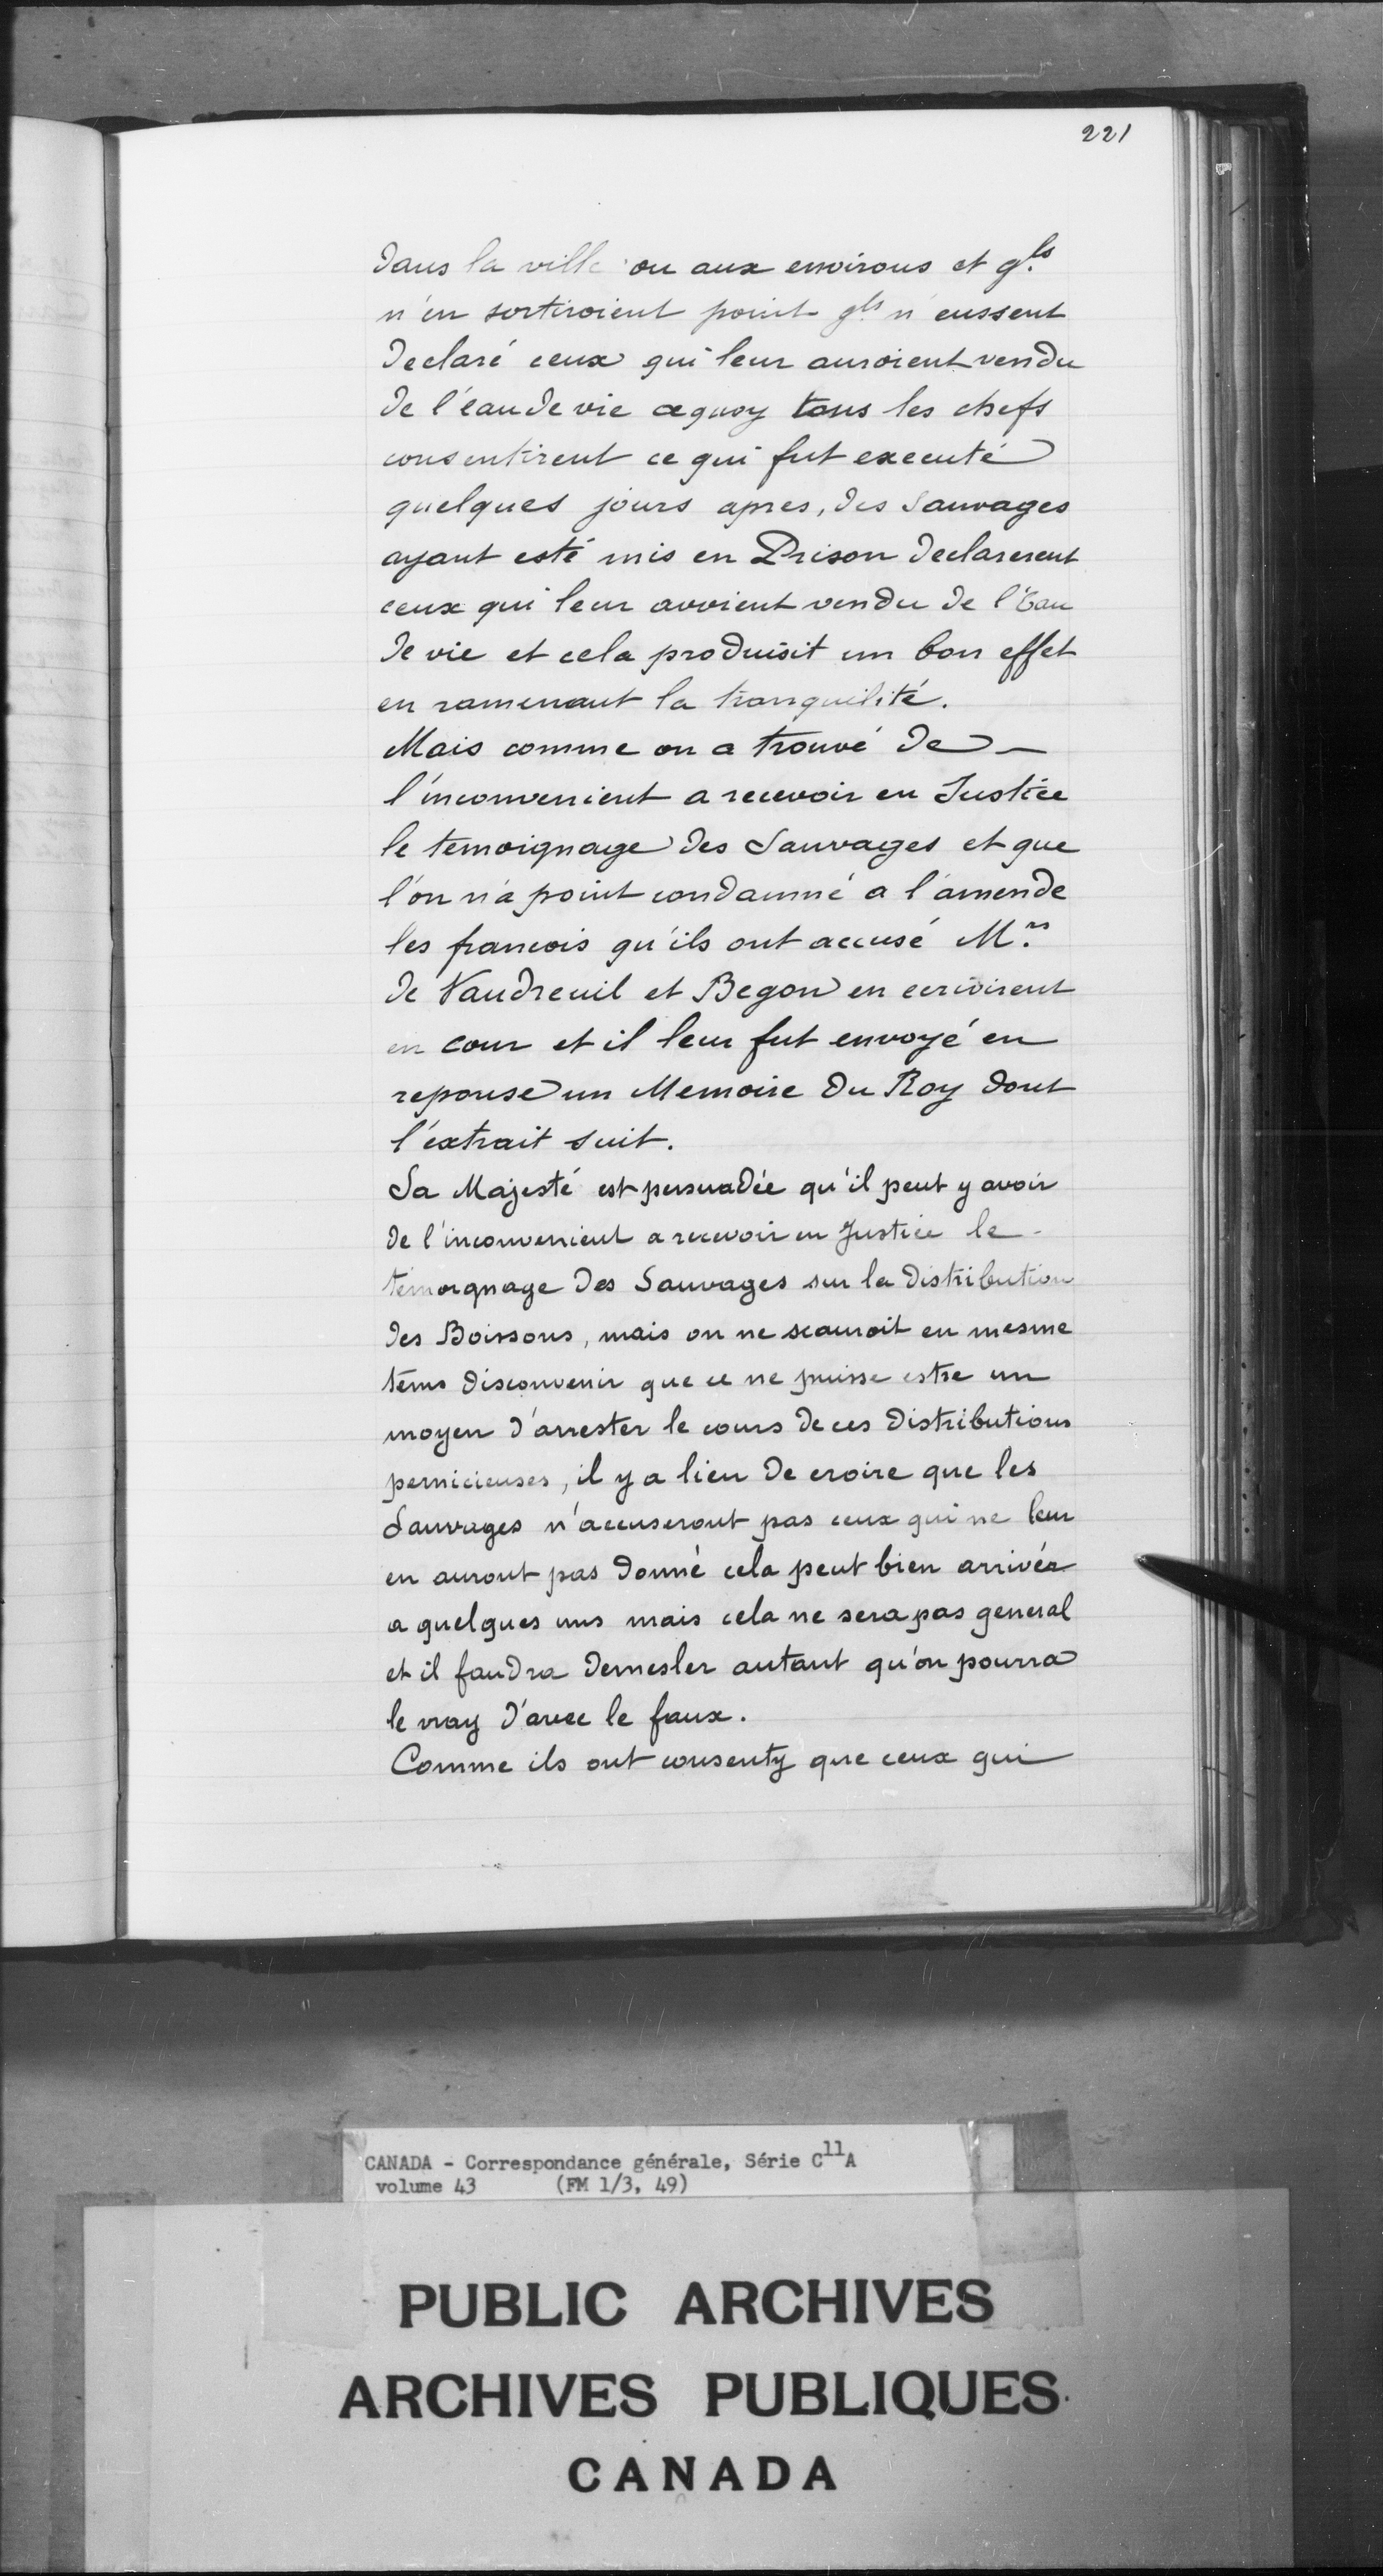 221
dans la ville ou aux environs et q.ls
n'en sortiroient point qls n'eussent
declaré ceux qui leur auroient vendu
de l'eau de vie aquoy tous les chefs
consentirent ce qui fut executé
quelques jours apres, des Sauvages
ayant esté mis en Prison declarerent
ceux qui leur avoient vendu de l'Eau
de vie et cela produisit un bon effet
en ramenant la tranquilité.
Mais comme on a trouvé de
l'inconvenient a recevoir en Justice
le temoignage des Sauvages et que
l'on n'a point condamné a l'amende
les francois qu'ils ont accusé M.rs
de Vaudreuil et Begon en ecrivirent
en cour et il leur fut envoyé en
reponse un Memoire du Roy dont
l'extrait suit.
Sa Majesté est persuadée qu'il peut y avoir
de l'inconvenient a recevoir en Justice le
temoignage des Sauvages sur la distribution
des Boissons, mais on ne scauroit en mesme
tems disconvenir que ce ne puisse estre un
moyen d'arrester le cours de ces distributions
pernicieuses, il y a lieu de croire que les
Sauvages n'accuseront pas ceux qui ne leur
en auront pas donné cela peut bien arrivér
a quelques uns mais cela ne sera pas general
et il faudra demesler autant qu'on pourra
le vray d'avec le faux.
Comme ils ont consenty que ceux qui
CANADA - Correspondance générale, Série C11A
volume 43 (FM 1/3, 49)
PUBLIC ARCHIVES
ARCHIVES PUBLIQUES
CANADA